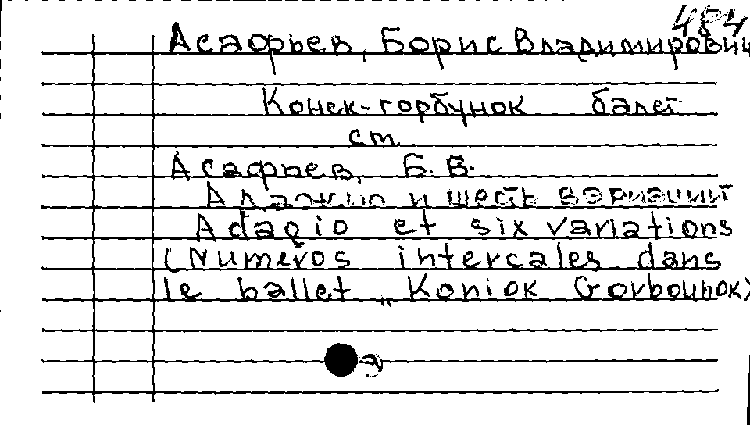 484
Асафьев, Борис Владимирович
Конек-горбунок балет
ст.
Асафьев, Б. В.
Адажио и шесть вариаций
Adagio et six variations
(Numéros intercales dans
le ballet „Koniok Gorbounok)
э